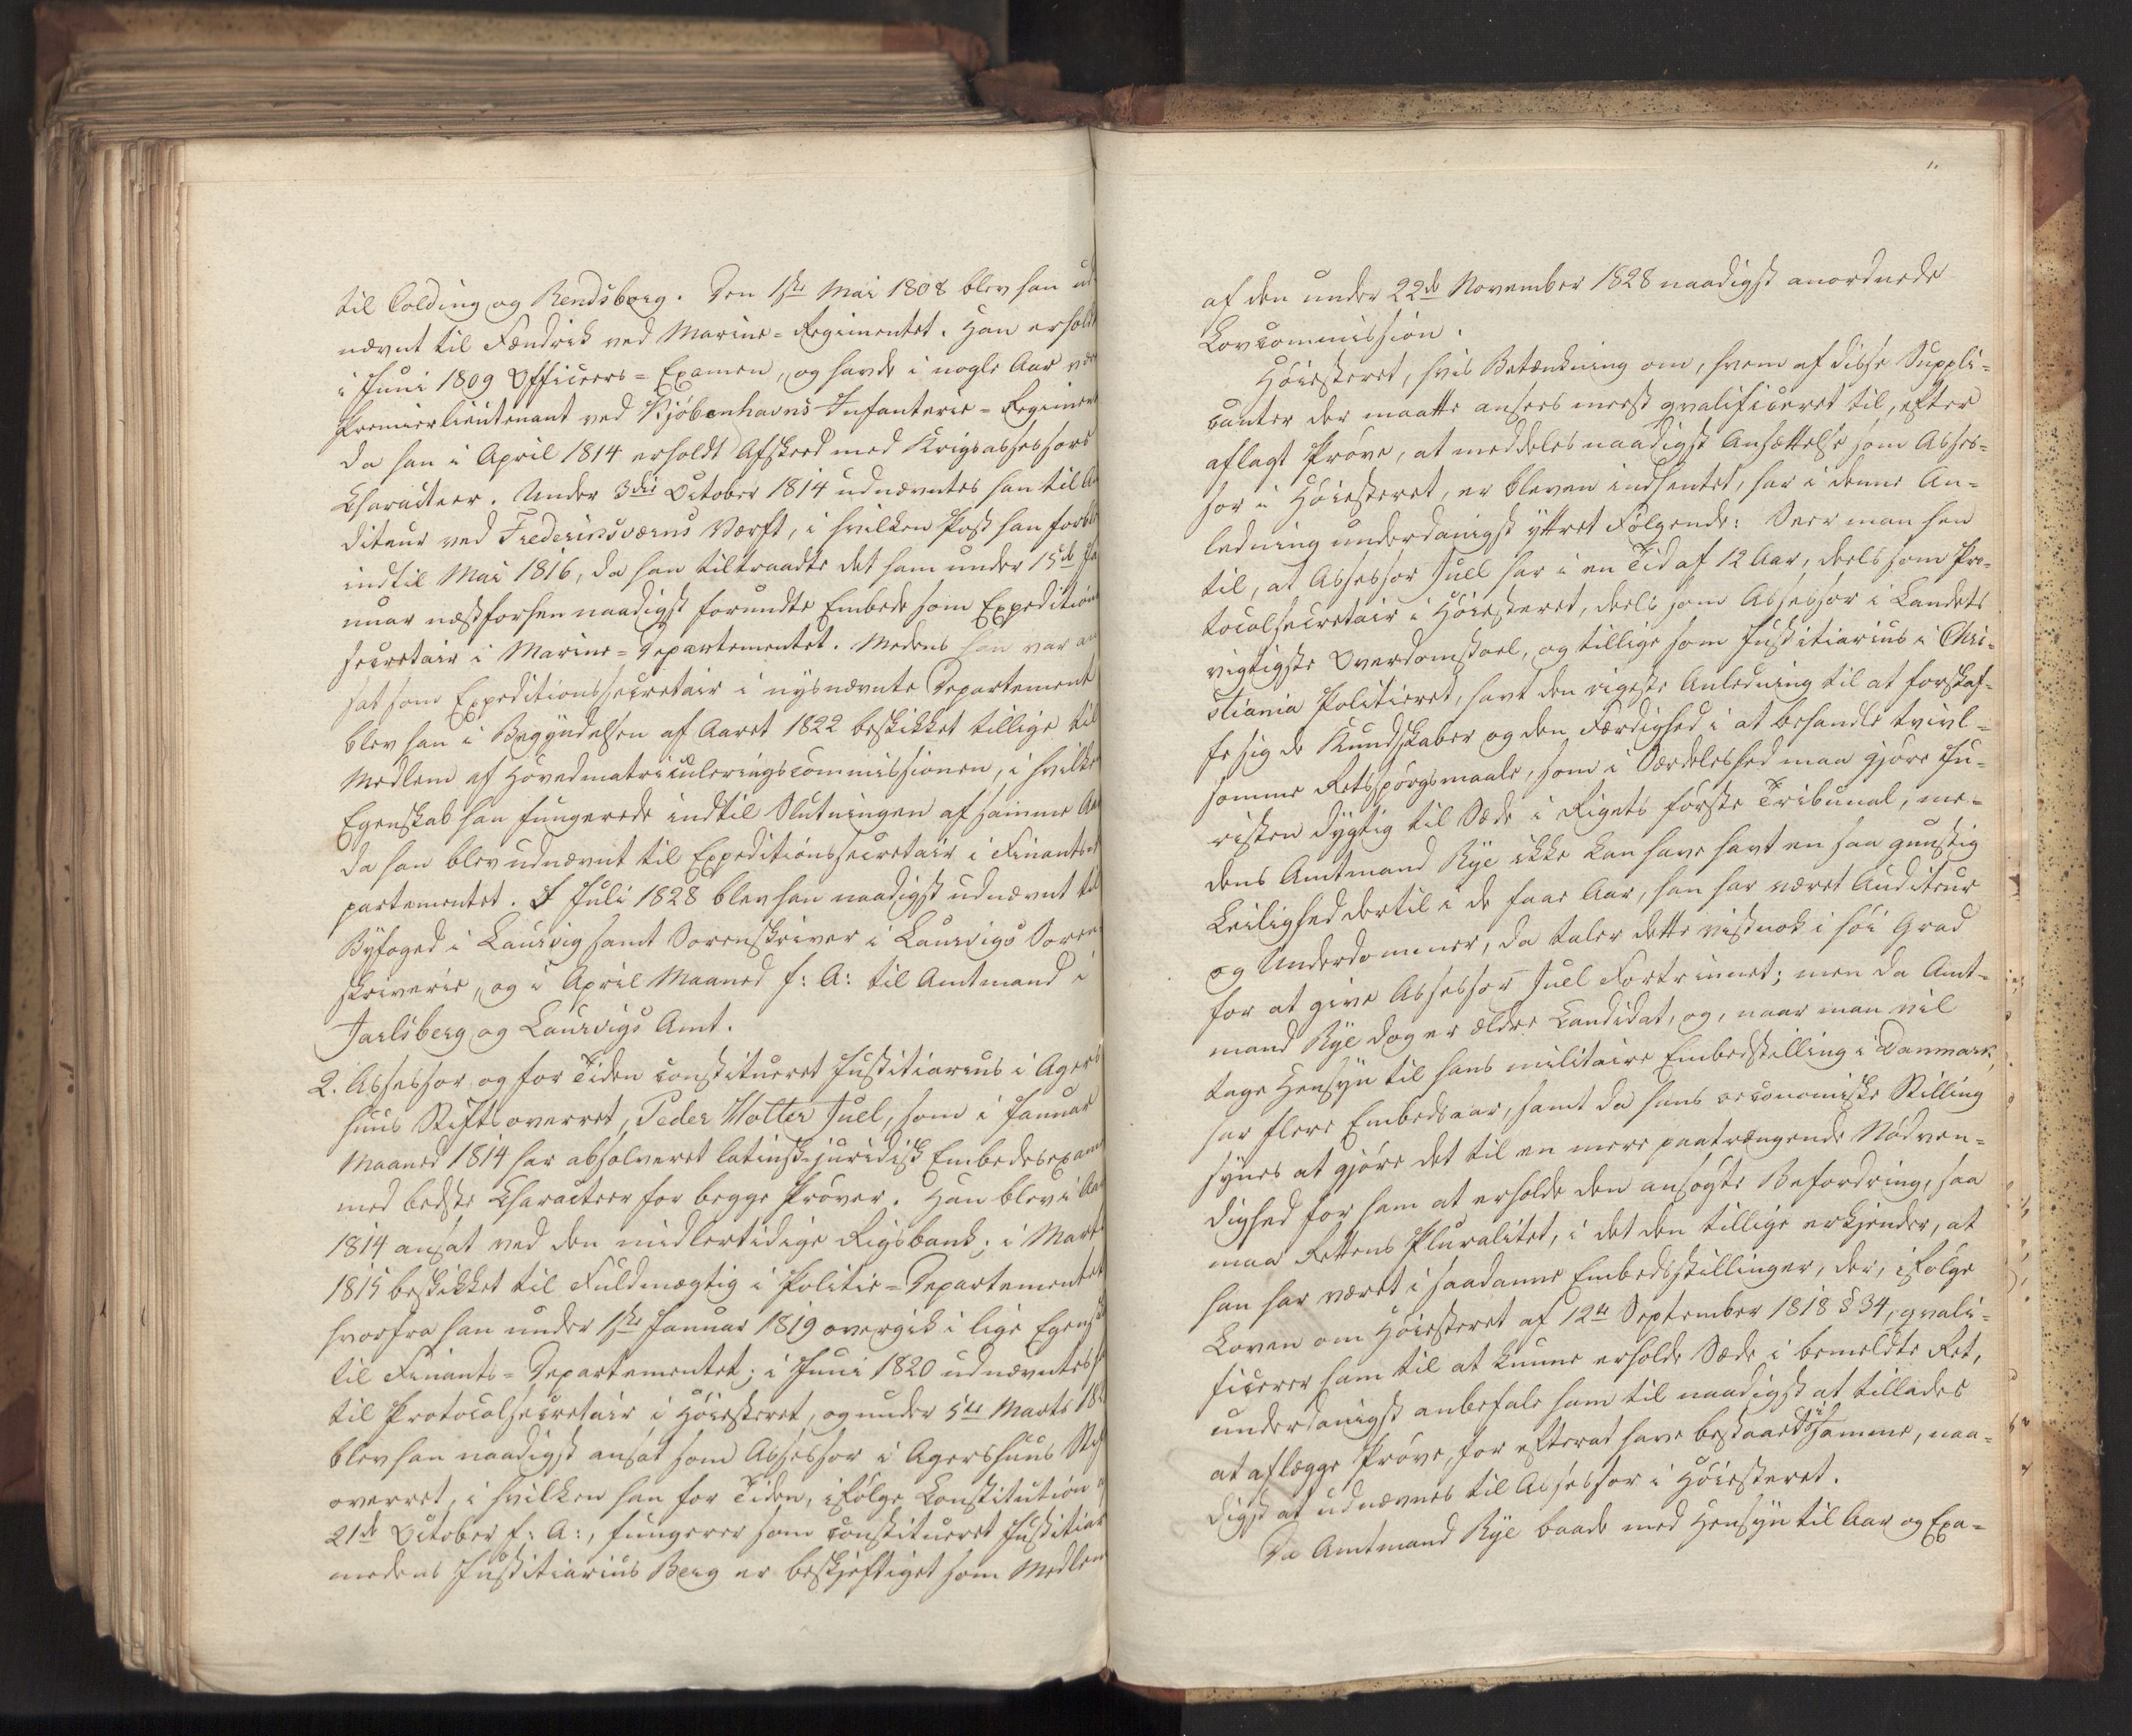 til Colding og Rendsborg. Den 1ste Mai 1808 blev han ud-
nævnt til Fændrik ved Marine-Regimentet. Han erholdt
i Juni 1809 Officeers-Examen, og havde i nogle Aar vær
Premierlieutenant ved Kjøbenhavns Infanterie-Regimen
da han i April 1814 erholdt Afskeed med Krigsassessors
Characteer. Under 3die October 1814 udnævntes han til Au
diteur ved Frederiksværns Værft, i hvilken Post han forble
indtil Mai 1816, da han tiltraadte det ham under 15de Ja
nuar næstforhen naadigst forundte Embede som Expeditions
secretair i Marine-Departementet. Medens han var an
sat som Expeditionssecretair i nysnævnte Departement
blev han i Begyndelsen af Aaret 1822 beskikket tillige til
Medlem af Hovedmatriculeringscommissionen, i hvilke
Egenskab han fungerede indtil Slutningen af samme Aa
da han blev udnævnt til Expeditionssecretair i Finantsde
partementet. I Juli 1828 blev han naadigst udnævnt til
Byfoged i Laurvig samt Sorenskriver i Laurvigs Soren
skriverie, og i April Maaned f: A: til Amtmand i
Jarlsberg og Laurvigs Amt.
2. Assessor og for Tiden constitueret Justitiarius i Agers
huus Stiftsoverret, Peder Motter Juel, som i Januar
Maaned 1814 har absolveret latinsk-juridisk Embedsexame
med bedste Characteer for begge Prøver. Han blev i Aar
1814 ansat ved den midlertidige Rigsbank; i Marts
1815 beskikket til Fuldmægtig i Politie-Departementet
hvorfra han under 1ste Januar 1819 overgik i lige Egensk
til Finants-Departementet; i Juni 1820 udnævntes ha
til Protocolsecretair i Høiesteret, og under 5te Marts 18
blev han naadigst ansat som Assessor i Agershuus Stif
overret, i hvilken han for Tiden, ifølge Constitution af
21de October f: A:, fungerer som constitueret Justitiar
medens Justitiarius Berg er beskjeftiget som Medlem
af den under 22de November 1828 naadigst anordnede
Lovcommission.
Høiesteret, hvis Betænkning om, hvem af disse Suppli-
canter der maatte ansees meest qvalificeret til, efter
aflagt Prøve, at meddeles naadigst Ansættelse som Asses-
sor i Høiesteret, er bleven indhentet, har i denne An-
ledning underdanigst yttret Følgende: Seer man hen
til, at Assessor Juel har i en Tid af 12 Aar, deels som Pro-
tocolsecretair i Høiesteret, deels som Assessor i Landets
vigtigste Overdomstoel, og tillige som Justitiarius i Chri-
stiania Politieret, havt den rigeste Anledning til at forskaf-
fe sig de Kundskaber og den Færdighed i at behandle tvivl-
somme Retsspørgsmaale, som i Særdeleshed maa gjøre Ju-
risten dygtig til Sæde i Rigets første Tribunal, me-
dens Amtmand Rye ikke kan have havt en saa gunstig
Leilighed dertil i de faae Aar, han har været Auditeur
og Underdommer, da taler dette vistnok i høi Grad
for at give Assessor Juel Fortrinnet; men da Amt-
mand Rye dog er ældre Candidat, og, naar man vil
tage Hensyn til hans militaire Embedsstilling i Danmark,
har flere Embedsaar, samt da hans oeconomiske Stilling
synes at gjøre det til en mere paatrængende Nødven-
dighed for ham at erholde den ansøgte Befordring, saa
maa Rettens Pluralitet, i det den tillige erkjender, at
han har været i saadanne Embedsstillinger, der, ifølge
Loven om Høiesteret af 12te September 1818 § 34, qvali-
ficerer ham til at kunne erholde Sæde i bemeldte Ret,
underdanigst anbefale ham til naadigst at tillades
at aflægge Prøve, for efterat have bestaaet i samme, naa-
digst at udnævnes til Assessor i Høiesteret.
Da Amtmand Rye baade med Hensyn til Aar og Exa-